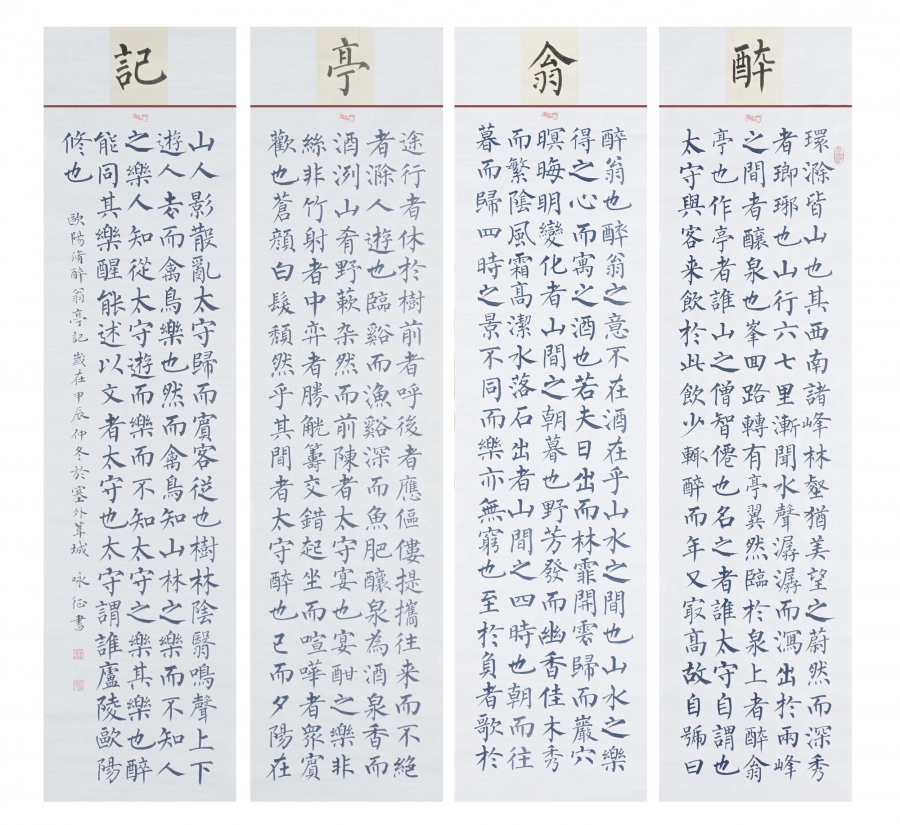 醉
環滁皆山也其西南諸峰林壑猶美望之蔚然而深秀
者瑯琊也山行六七里漸聞水聲潺潺而瀉出於兩峰
之間者釀泉也峯回路轉有亭翼然臨於泉上者醉翁
亭也作亭者誰山之僧智僊也名之者誰太守自謂也
太守與客来飲於此飲少輒醉而年又最高故自號曰
翁
醉翁也醉翁之意不在酒在乎山水之間也山水之樂
得之心而寓之酒也若夫日出而林霏開雲歸而巖穴
暝晦明變化者山間之朝暮也野芳發而幽香佳木秀
而繁陰風霜高潔水落石出者山間之四時也朝而往
暮而歸四時之景不同而樂亦無窮也至於負者歌於
亭
途行者休於樹前者呼後者應傴僂提攜往来而不絕
者滁人遊也臨谿而漁谿深而魚肥釀泉為酒泉香而
酒洌山肴野蔌杂然而前陳者太守宴也宴酣之樂非
絲非竹射者中弈者勝觥籌交錯起坐而喧嘩者衆賓
歡也蒼顏白髮頹然乎其間者太守醉也已而夕陽在
記
山人影散亂太守歸而賓客從也樹林陰翳鳴聲上下
遊人去而禽鳥樂也然而禽鳥知山林之樂而不知人
之樂人知從太守遊而樂而不知太守之樂其樂也醉
能同其樂醒能述以文者太守也太守謂誰廬陵歐陽
修也
歐陽脩醉翁亭記歲在甲辰仲冬於塞外葦城 咏征書